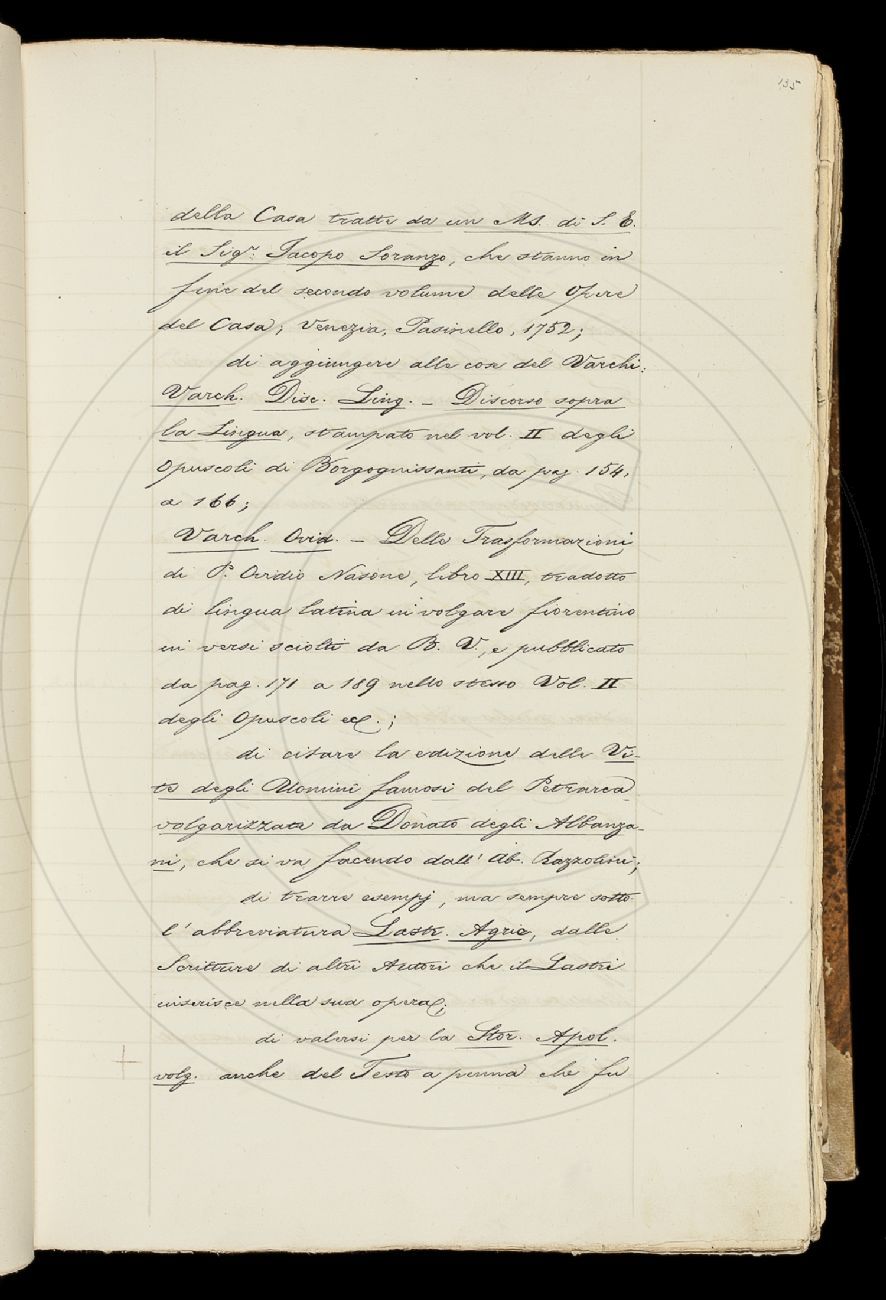 135
della Casa tratte da un Ms. di S. E.
il Sigr. Jacopo Soranzo, che stanno in
fine del secondo volume delle Opere
del Casa; Venezia, Pasinello, 1752;
di aggiungere alle cose del Varchi:
Varch. Disc. Ling. – Discorso sopra
la Lingua, stampato nel vol. II degli
Opuscoli di Borgognissanti, da pag. 154,
a 166;
Varch. Ovid. – Delle Trasformazioni
di P. Ovidio Nasone, libro XIII, tradotto
di lingua latina in volgare fiorentino
in versi sciolti da B. V., e pubblicato
da pag. 171 a 189 nello stesso Vol. II
degli Opuscoli ecc.;
di citare la edizione delle Vi-
te degli Uomini famosi del Petrarca
volgarizzate da Donato degli Albanza-
ni, che si va facendo dall' Ab. Razzolini;
di trarre esempj, ma sempre sotto
l'abbreviatura Lastr. Agric, dalle
Scritture di altri Autori che il Lastri
inserisce nella sua opera;
di valersi per la Stor. Apol.
volg. anche del Testo a penna che fu